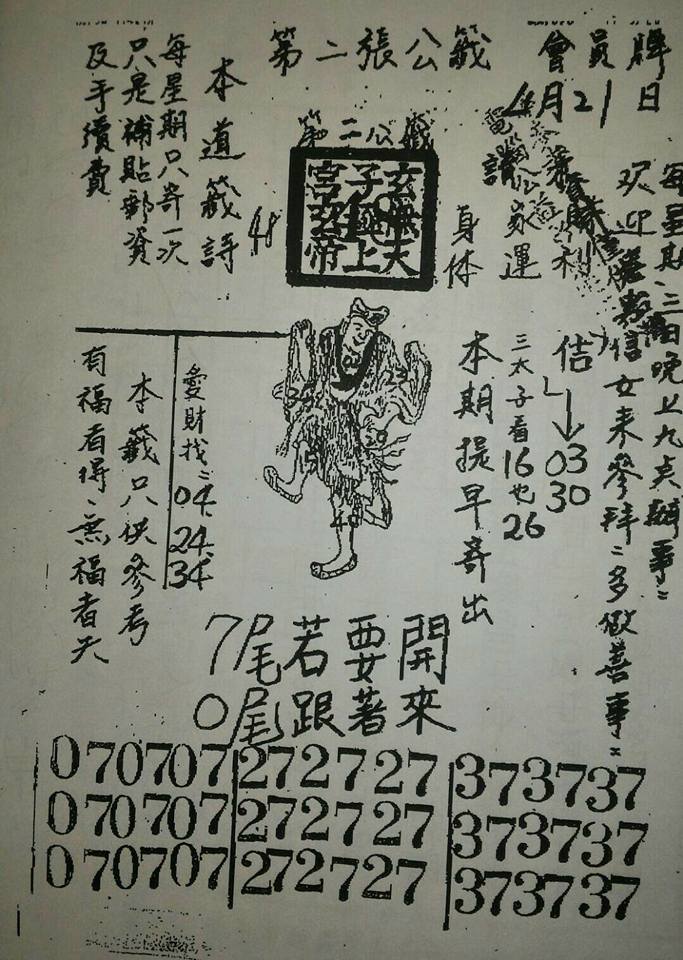 第二張公籤
會員牌
4月21日
每星期三日晚上九点辦事
信女來參拜多做善事
欢迎
家運
身体
第二公籤
玄無天
子 上
宮 帝
48
本道籤詩
每星期只寄一次
只是補貼郵資
及手續費
佶
03
30
三太子看16也26
本期提早寄出
23
40
愛財找
04
24
34
本籤只供參考
有福者得、無福者失
7尾若要開
0尾跟著來
070707 272727 373737
070707 272727 373737
070707 272727 373737